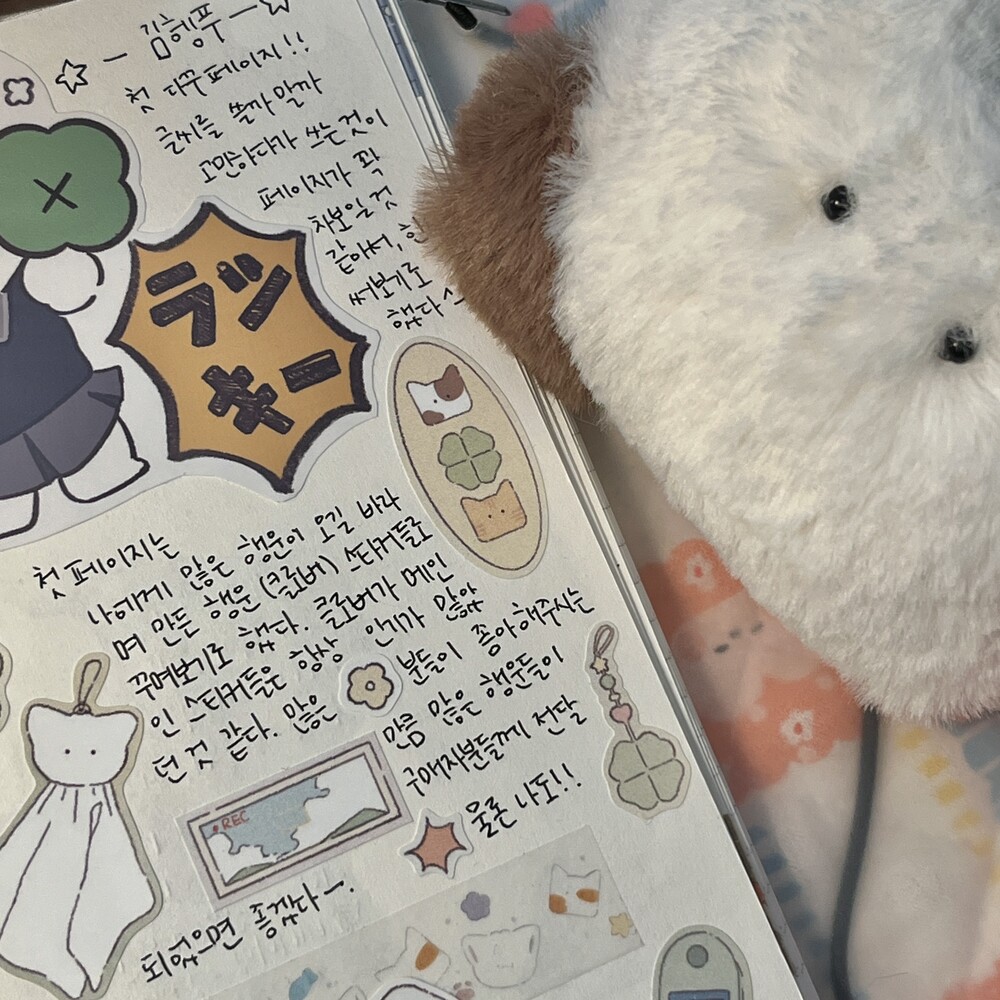 김헹푸
첫 다꾸 페이지!!
글씨를 쓸까 말까
고민하다가 쓰는것이
페이지가 꽉
차보일 것
같아서,
써보기로
했다
ラッ
キー
첫 페이지는
나에게 많은 행운이 오길 바라
며 만든 행운 (클로버) 스티커들로
꾸며보기로 했다. 클로버가 메인
인 스티커들은 항상 인기가 많았
던 것 같다. 많은 분들이 좋아해주시는
만큼 많은 행운들이
구매자분들께 전달
REC
물론 나도!!
되었으면 좋겠다~.